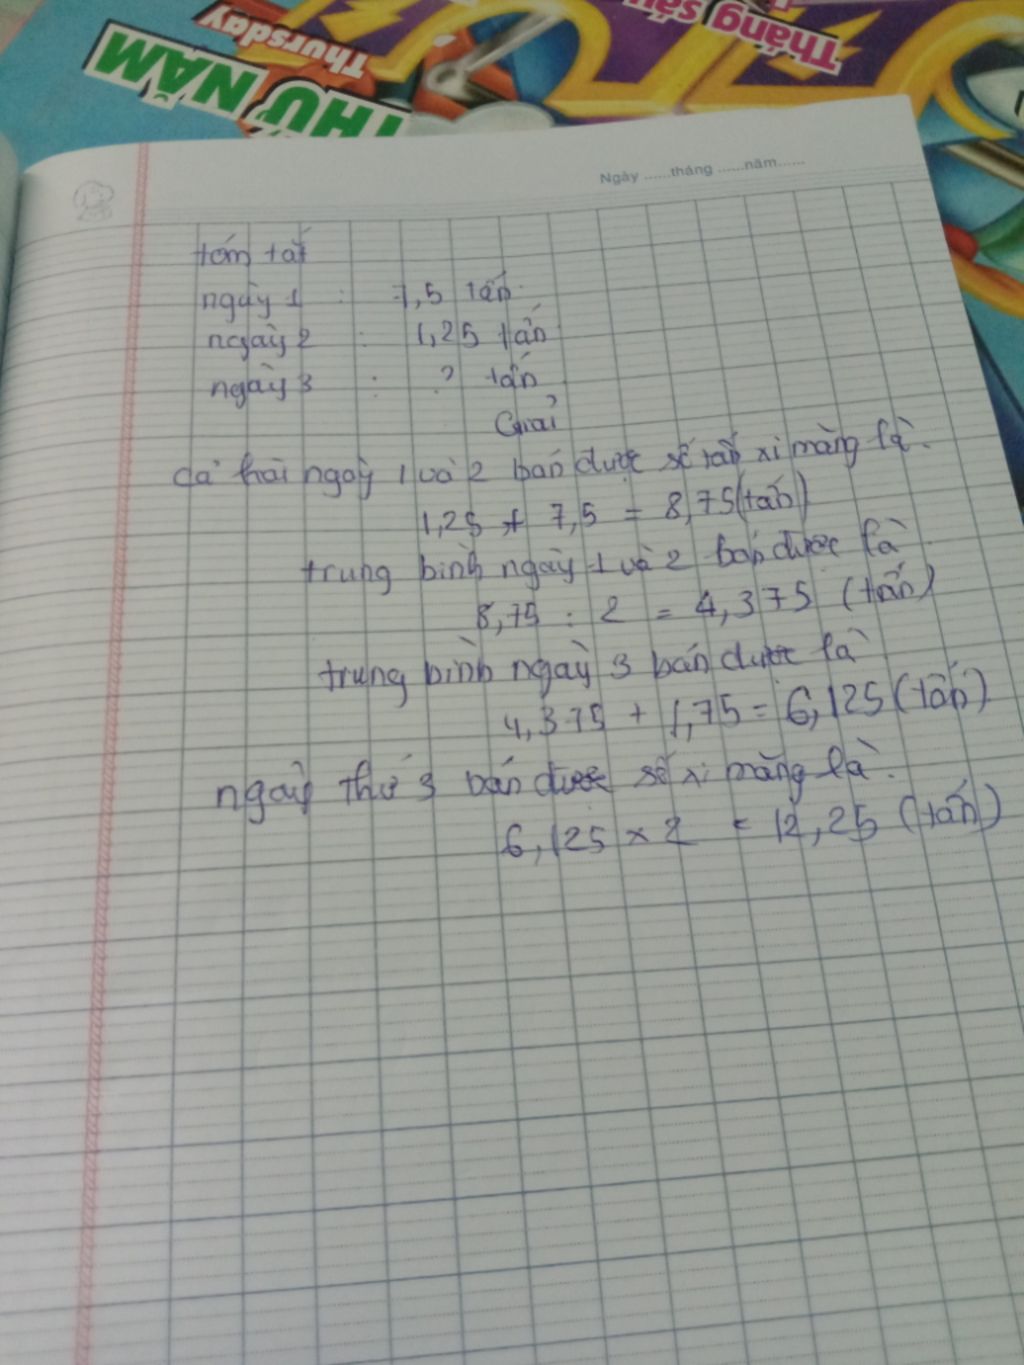 Tháng sáu
Thursday
THỨ NĂM
Ngày ......tháng ......năm......
tóm tắt
ngày 1 : 7,5 tấn
ngày 2 : 1,25 tấn
ngày 3 : ? tấn
Giải
cả hai ngày 1 và 2 bán được số tấn xi măng là.
1,25 + 7,5 = 8,75 (tấn)
trung bình ngày 1 và 2 bán được là
8,75 : 2 = 4,375 (tấn)
trung bình ngày 3 bán được là
4,375 + 1,75 = 6,125 (tấn)
ngày thứ 3 bán được số xi măng là.
6,125 x 2 = 12,25 (tấn)